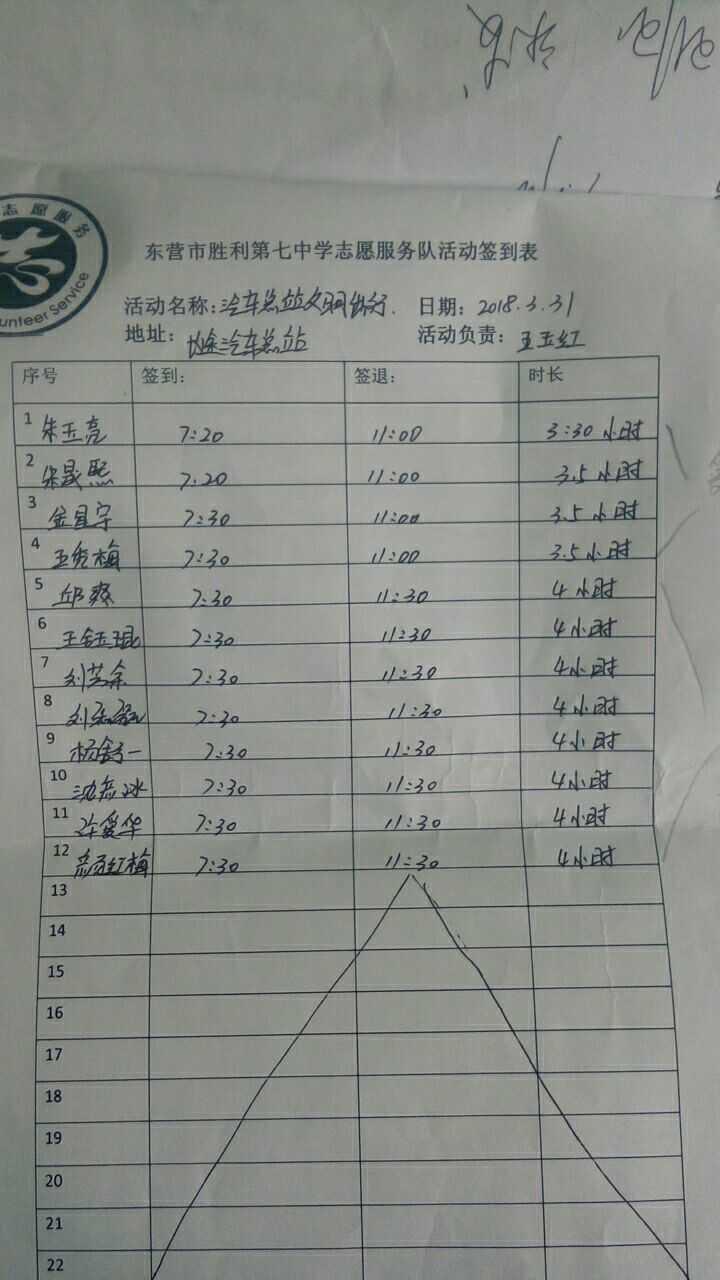 志愿服务
unteer Service
东营市胜利第七中学志愿服务队活动签到表
活动名称:汽车总站文明出行. 日期:2018.3.31
地址:长途汽车总站 活动负责:王玉红
序号 签到: 签退: 时长
1 朱玉亮 7:20 11:00 3:30 小时
2 朱晟熙 7.20 11:00 3.5 小时
3 金宜宁 7:30 11:00 3.5 小时
4 王秀梅 7:30 11:00 3.5 小时
5 邱爽 7:30 11:30 4 小时
6 王钰琨 7:30 11:30 4小时
7 刘芸余 7:30 11:30 4小时
8 7:30 11:30 4小时
9 杨舒一 7:30 11:30 4小时
10 沈彦冰 7:30 11:30 4小时
11 许爱华 7:30 11:30 4小时
12 红梅 7:30 11:30 4小时
13
14
15
16
17
18
19
20
21
22